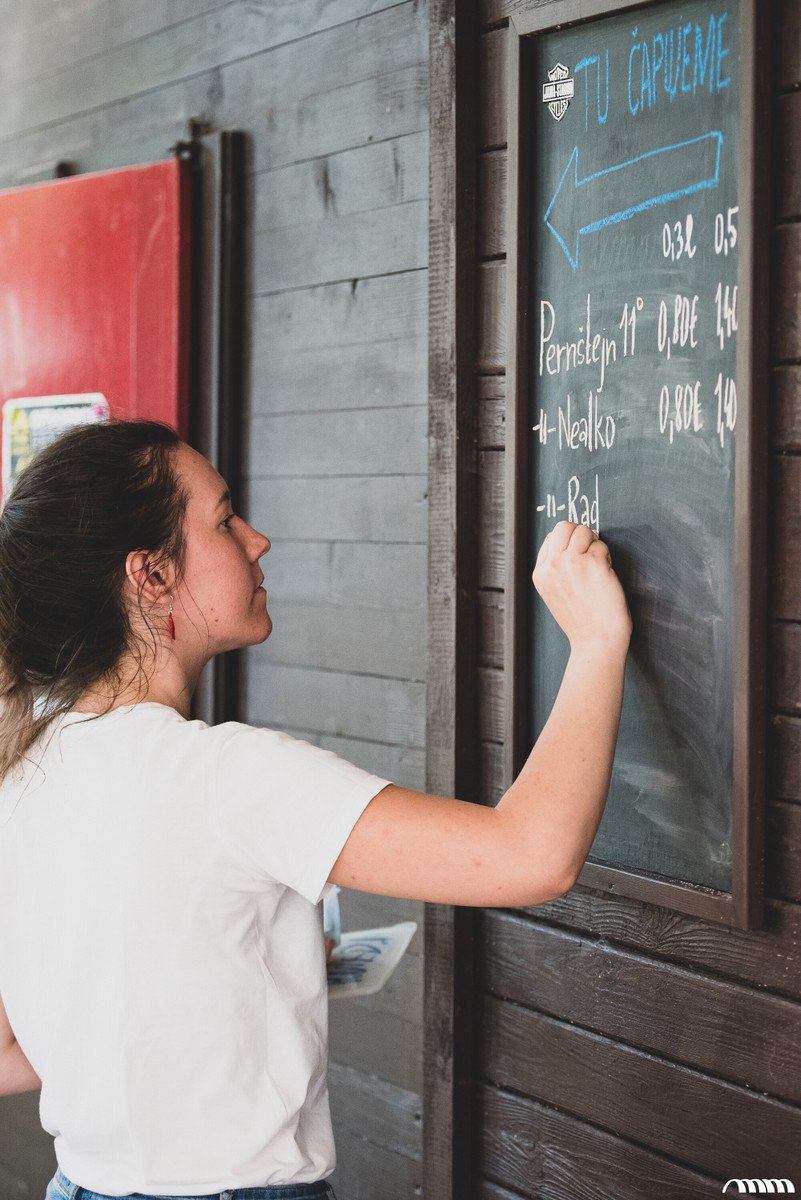 TU ČAPUJEME
0,3l 0,5
Pernštejn 11° 0,80€ 1,40
-"- Nealko 0,80€ 1,40
-"- Rad